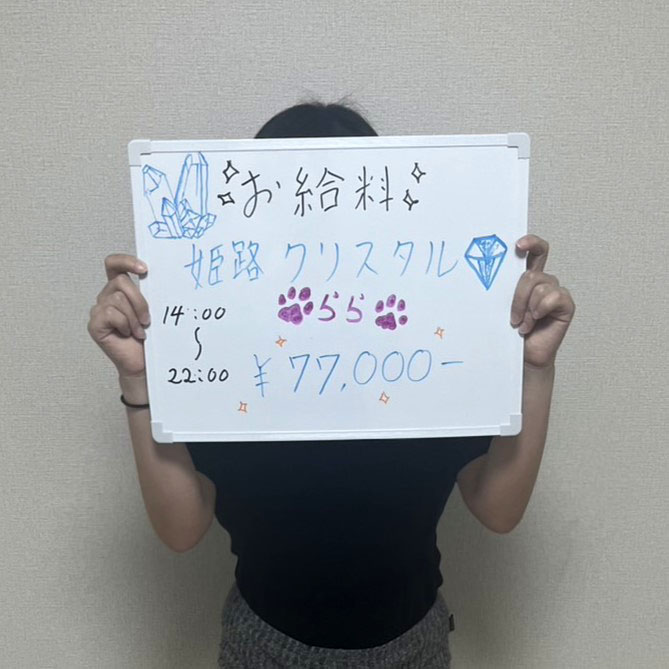 お給料
姫路 クリスタル
らら
14:00
〜
22:00
¥77,000-